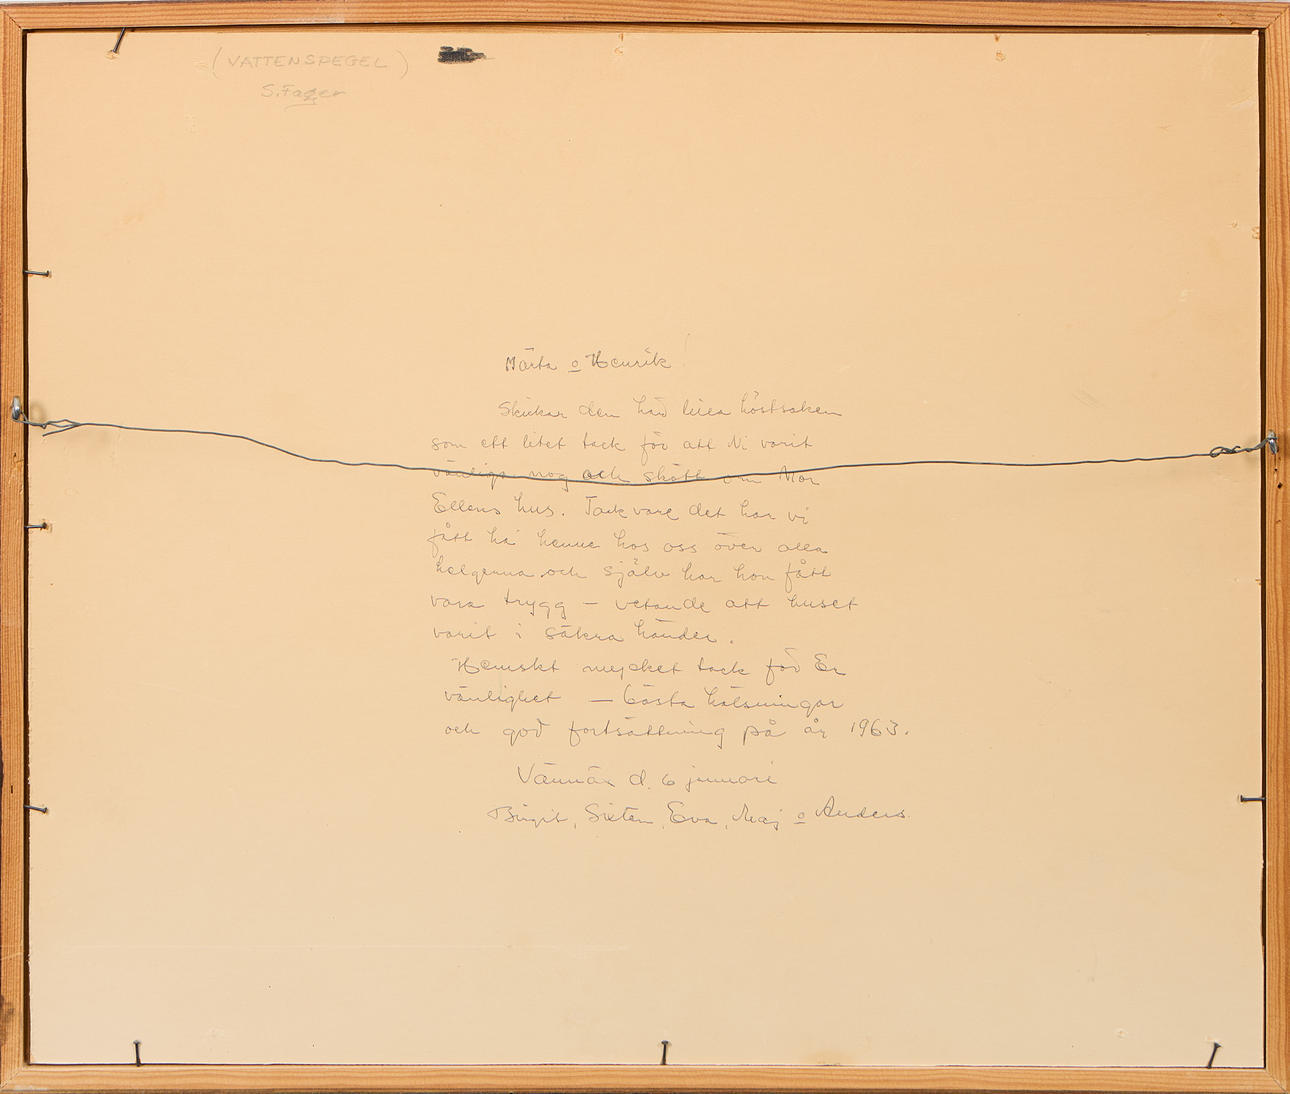 (VATTENSPEGEL)
S. Fager
Märta o Henrik!
Skickar den här lilla höstsaken
som ett litet tack för att Ni varit
vänliga nog och skött om Mor
Ellens hus. Tack vare det har vi
fått ha henne hos oss över alla
helgerna och själv har hon fått
vara trygg – vetande att huset
varit i säkra händer.
Hemskt mycket tack för Er
vänlighet – bästa hälsningar
och god fortsättning på år 1963.
Vännäs d. 6 januari
Birgit, Sixten, Eva, Maj o Anders